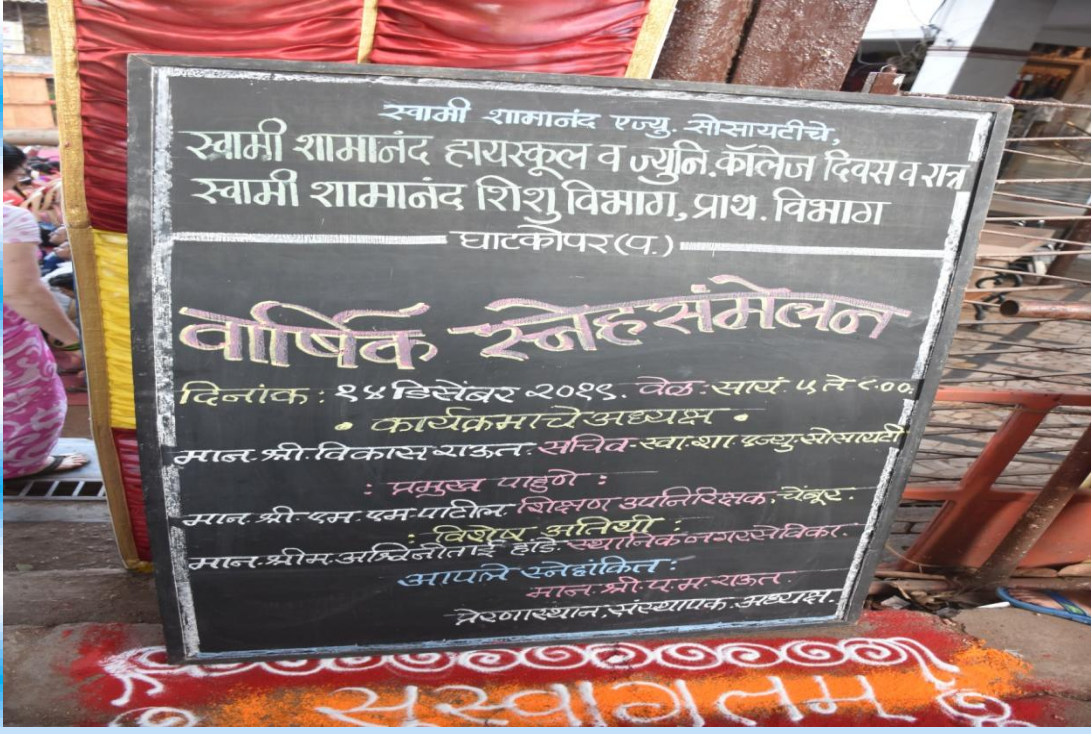 स्वामी शामानंद एज्यु. सोसायटीचे,
स्वामी शामानंद हायस्कूल व ज्युनि.कॉलेज दिवस व रात्र
स्वामी शामानंद शिशु विभाग, प्राथ. विभाग
घाटकोपर (प.)
वार्षिक स्नेहसंमेलन
दिनांक : १४ डिसेंबर २०१९. वेळ : सायं. ५ ते ९.००
• कार्यक्रमाचे अध्यक्ष •
मान. श्री. विकास राऊत. सचिव. स्वा. शा. एज्यु. सोसायटी
: प्रमुख पाहुणे :
मान. श्री. एम. एम. पाटील. शिक्षण उपनिरिक्षक, चेंबूर.
: विशेष अतिथी :
मान. श्रीम. अश्विनीताई हांडे. स्थानिक नगरसेविका.
आपले स्नेहांकित :
मान. श्री. प. म. राऊत.
प्रेरणास्थान, संस्थापक. अध्यक्ष.
सुस्वागतम